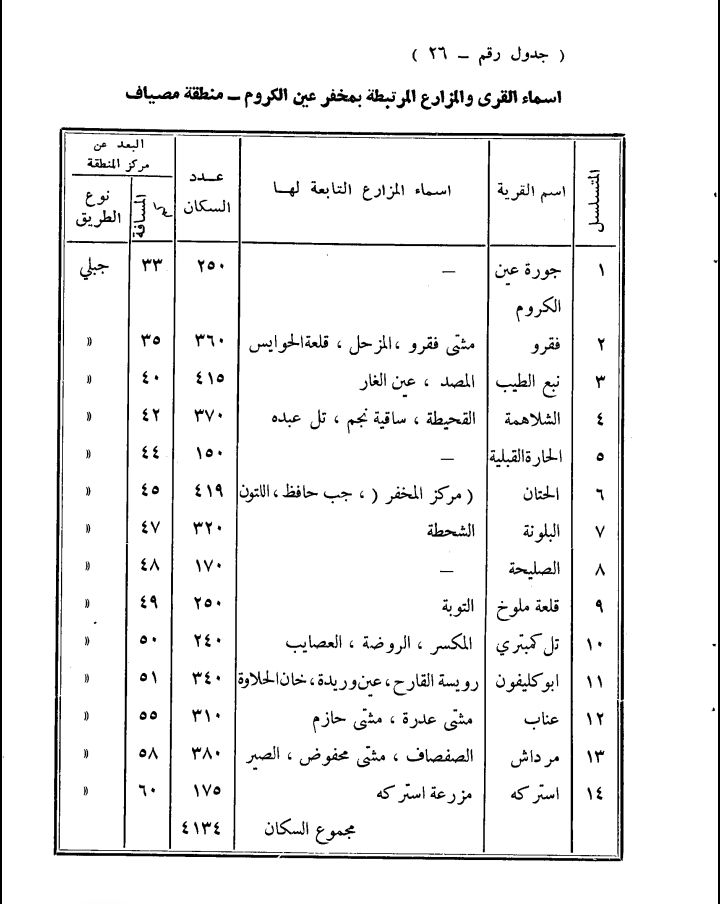 ( جدول رقم – ٢٦ )
اسماء القرى والمزارع المرتبطة بمخفر عين الكروم – منطقة مصياف
المتسلسل | اسم القرية | اسماء المزارع التابعة لها | عدد السكان | البعد عن مركز المنطقة | المسافة | نوع الطريق
١ | جورة عين الكروم | – | ٢٥٠ | ٣٣ | جبلي
٢ | فقرو | مشتى فقرو ، المزحل ، قلعة الحوايس | ٣٦٠ | ٣٥ | »
٣ | نبع الطيب | المصد ، عين الغار | ٤١٥ | ٤٠ | »
٤ | الشلاهمة | القحيطة ، ساقية نجم ، تل عبده | ٣٧٠ | ٤٢ | »
٥ | الحارة القبلية | – | ١٥٠ | ٤٤ | »
٦ | الحتان | ( مركز المخفر ( ، جب حافظ ، اللتون | ٤١٩ | ٤٥ | »
٧ | البلونة | الشحطة | ٣٢٠ | ٤٧ | »
٨ | الصليحة | – | ١٧٠ | ٤٨ | »
٩ | قلعة ملوخ | التوبة | ٢٥٠ | ٤٩ | »
١٠ | تل كمبتري | المكسر ، الروضة ، العصايب | ٢٤٠ | ٥٠ | »
١١ | ابو كليفون | رويسة القارح ، عين وريدة ، خان الحلاوة | ٣٤٠ | ٥١ | »
١٢ | عناب | مشتى عدرة ، مشتى حازم | ٣١٠ | ٥٥ | »
١٣ | مرداش | الصفصاف ، مشتى محفوض ، الصير | ٣٨٠ | ٥٨ | »
١٤ | استركه | مزرعة استركه | ١٧٥ | ٦٠ | »
مجموع السكان ٤١٣٤